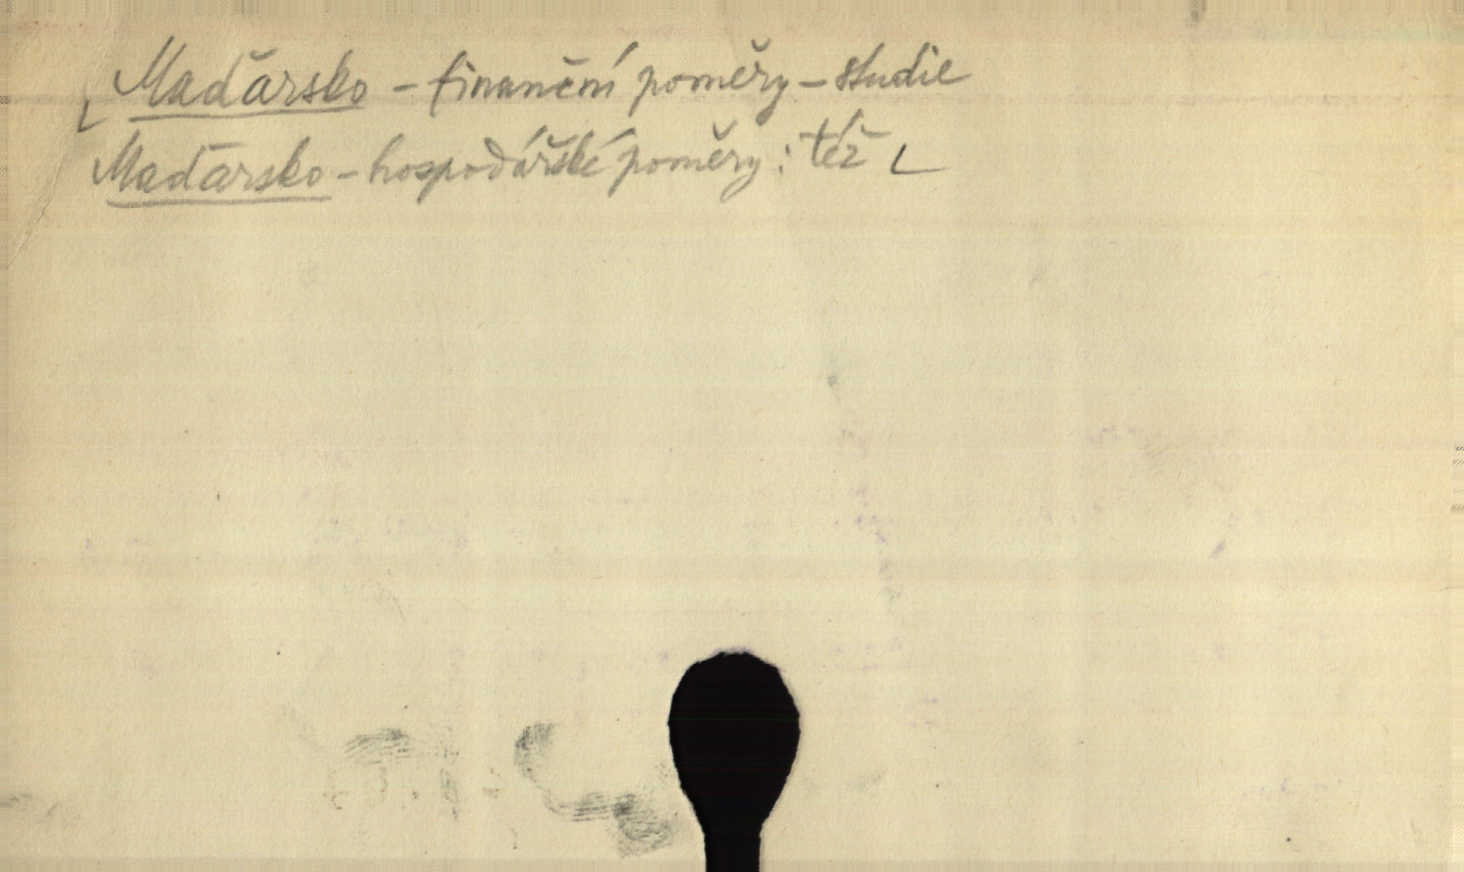 Maďarsko – finanční poměry – studie
Maďarsko – hospodářské poměry : též